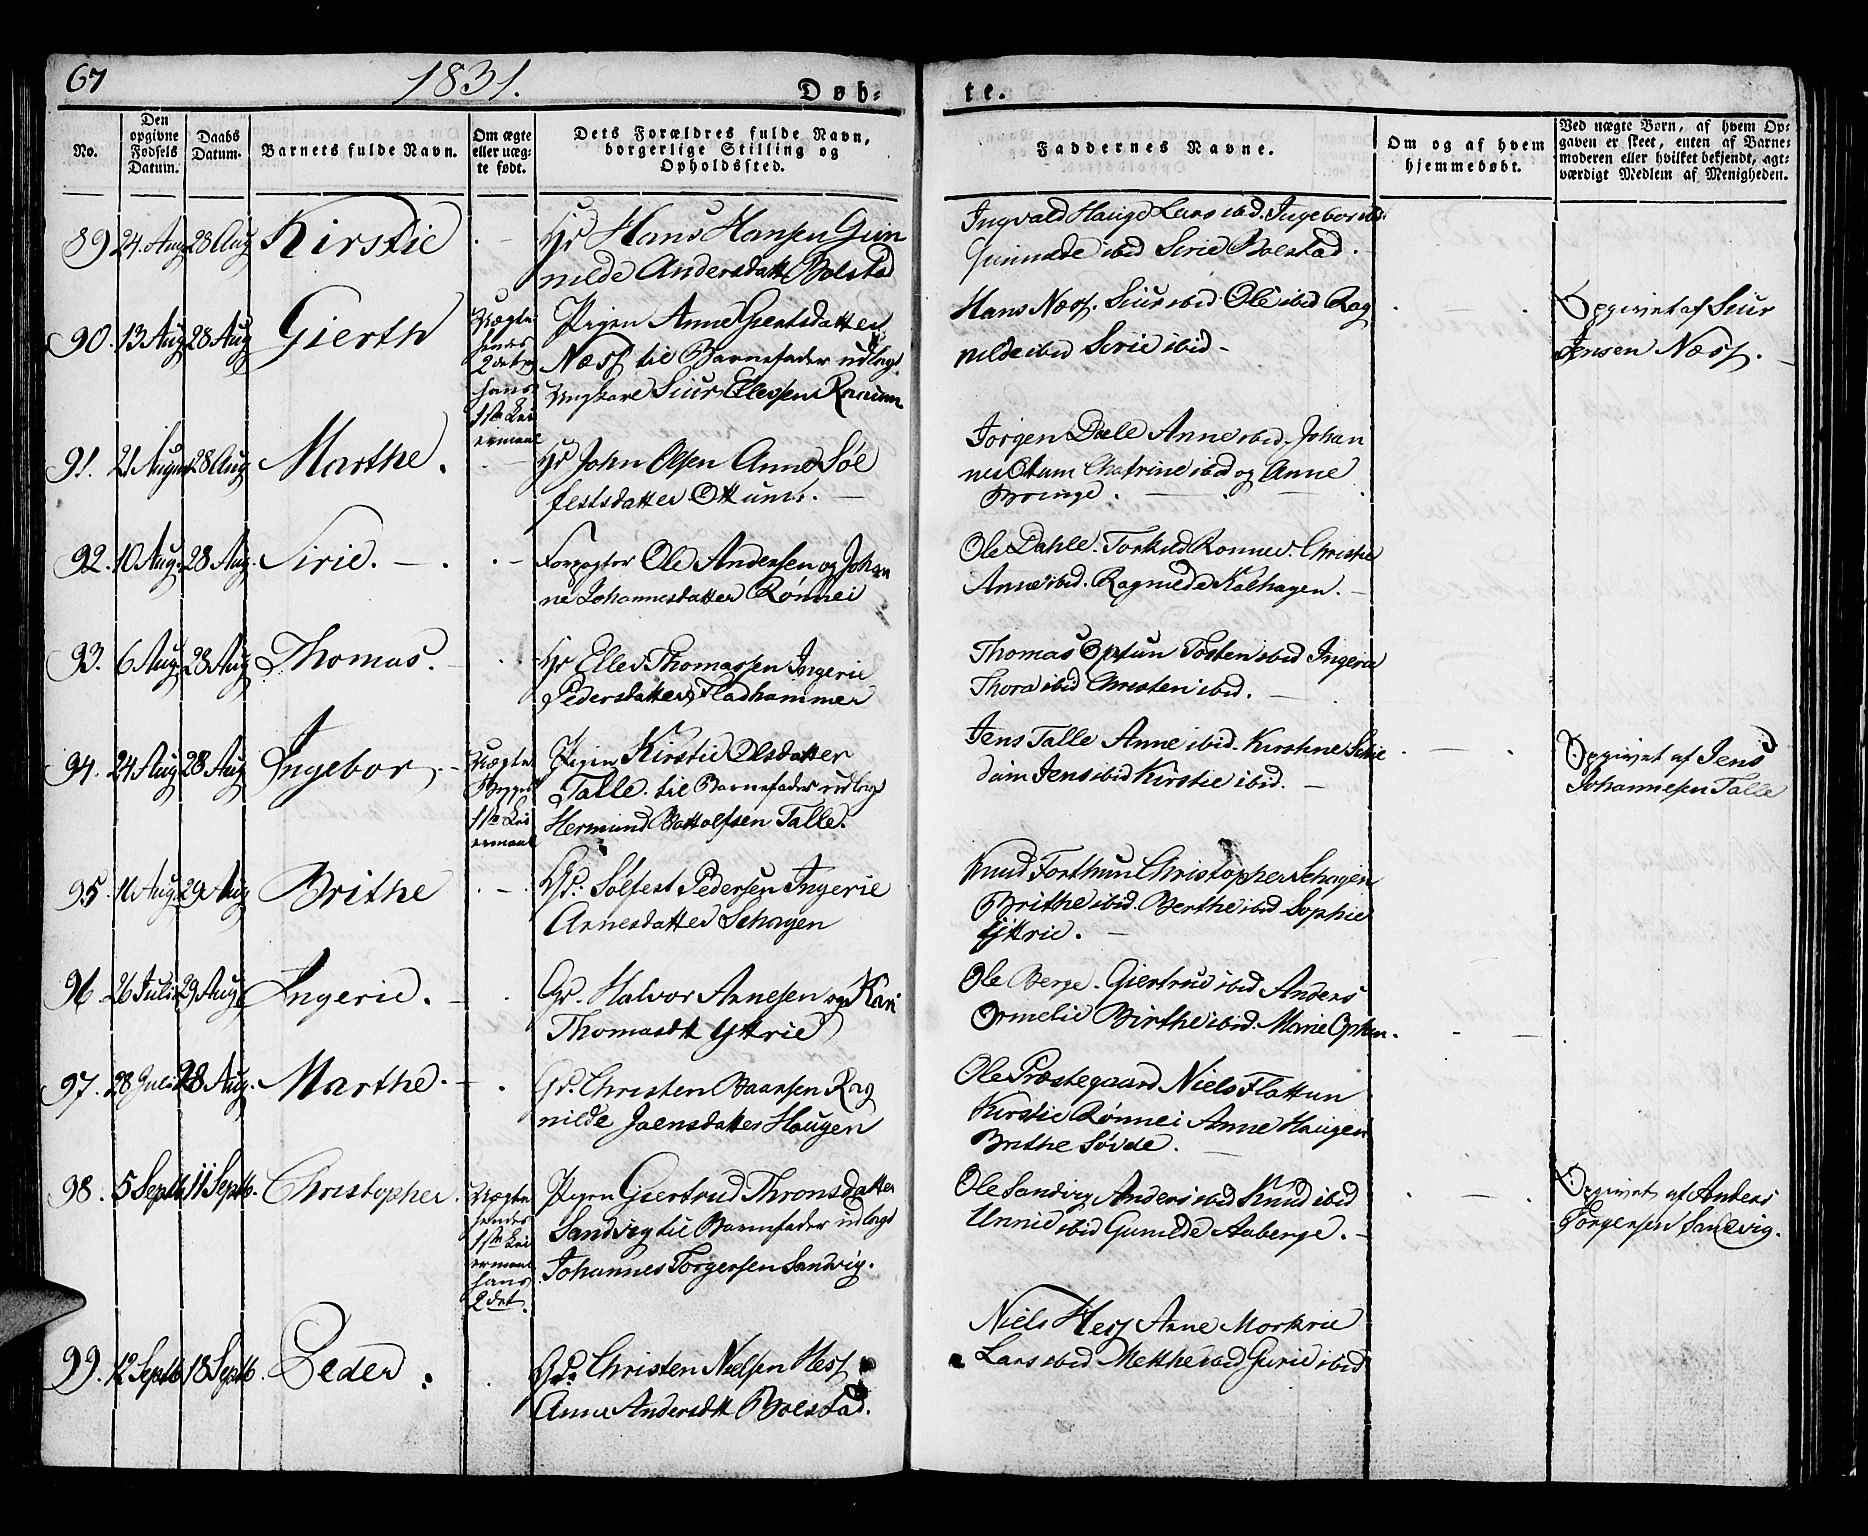 67 1831. Døb- te.
No.
Den opgivne Fødsels Datum.
Daabs Datum.
Barnets fulde Navn.
Om ægte eller uægte født.
Dets Forældres fulde Navn, borgerlige Stilling og Opholdssted.
Faddernes Navne.
Om og af hvem hjemmedøbt.
Ved uægte Børn, af hvem Opgaven er skeet, enten af Barnemoderen eller hvilket bekjendt, agtværdigt Medlem af Menigheden.
89 24 Aug 28 Aug Kirstie
Hans Hansen Gun
nilde Andersdatt Bolstad
Ingvald Hauge Lars ibd. Ingebor ibd.
Gunnilde ibid Sirie Bolstad.
90. 13 Aug 28 Aug Gierth
Uægte
hendes
2det
hans
1ste Lei
ermaal
Pigen Anne Giertsdatter
Næss til Barnefader udlagt
Ungkarl Siur Ellessen
Hans Næss. Siur ibid. Ole ibid Rag
nilde ibid Sirie ibid -
Opgivet af Siur
Jensen Næss. -
91. 21 August 28 Aug Marthe.
John Olsen Anne Søl
festsdatter Ottums. -
Jørgen Dale Anne ibid. Johan
nes Otum Chatrine ibid og Anne
Bringe.
92. 10 Aug. 28 Aug. Sirie. -
Forpagter Ole Andersen og Johan
ne Johannesdatter Rønnei
Ole Dahle. Torkild Ronnei. Christie
Anne ibid. Ragnilde Kalhagen. -
93. 6 Aug. 28 Aug Thomas.
Elles Thomassen Ingerie
Pedersdatter Fladhammer
Thomas Optun Tosten ibid Ingerie
Thora ibid Christen ibid. -
94. 24 Aug 28 Aug Ingebor. -
Uægte
Begges
1ste Lei
ermaal
Pigen Kirstie Olsdatter
Talle. til Barnefader udlagt
Hermund Bottolfsen Talle.
Jens Talle Anne ibid. Kirstine
Jens ibid Kirstie ibid. -
Opgivet af Jens
Johannesen Talle
95. 11 Aug. 29 Aug Brithe
Gd. Sølfest Pedersen Ingerie
Arnesdatter Schagen
Knud Forthun Christopher Schagen
Brithe ibid. Berthe ibid Sophie
Yttrie. -
96 26 Juli 29 Aug Ingerie. -
Gd. Halvor Arnesen og Kari
Thomasdtt Yttrie
Ole Berge. Giertrud ibid Anders
Ormelie Birthe ibid. Marie Opheim.
97. 28 Juli 28 Aug. Marthe. -
Gd. Christen Baarsen Rag
nilde Joensdatter Haugen
Ole Præstegaard Niels Flattun
Kirstie Rønnei Anne Haugen
Brithe Søvde. -
98. 5 Septb 11 Septb. Christopher.
Uægte
hendes
1ste Lei
ermaal
hans
2det.
Pigen Giertrud Thronsdatter
Sandvig til Barnefader udlagt
Johannes Torgersen Sandvig.
Ole Sandvig Anders ibid Knud ibid
Unnie ibid Gunilde Aaberge. -
Opgivet af Anders
Torgersen Sandvig.
99. 12 Septb 18 Septb. Peder.
Gd. Christen Nielsen Hess
Anne Andersdtt Bolstad.
Niels Hess Anne Morkrie
Lars ibid Metthe ibid Gurie ibid